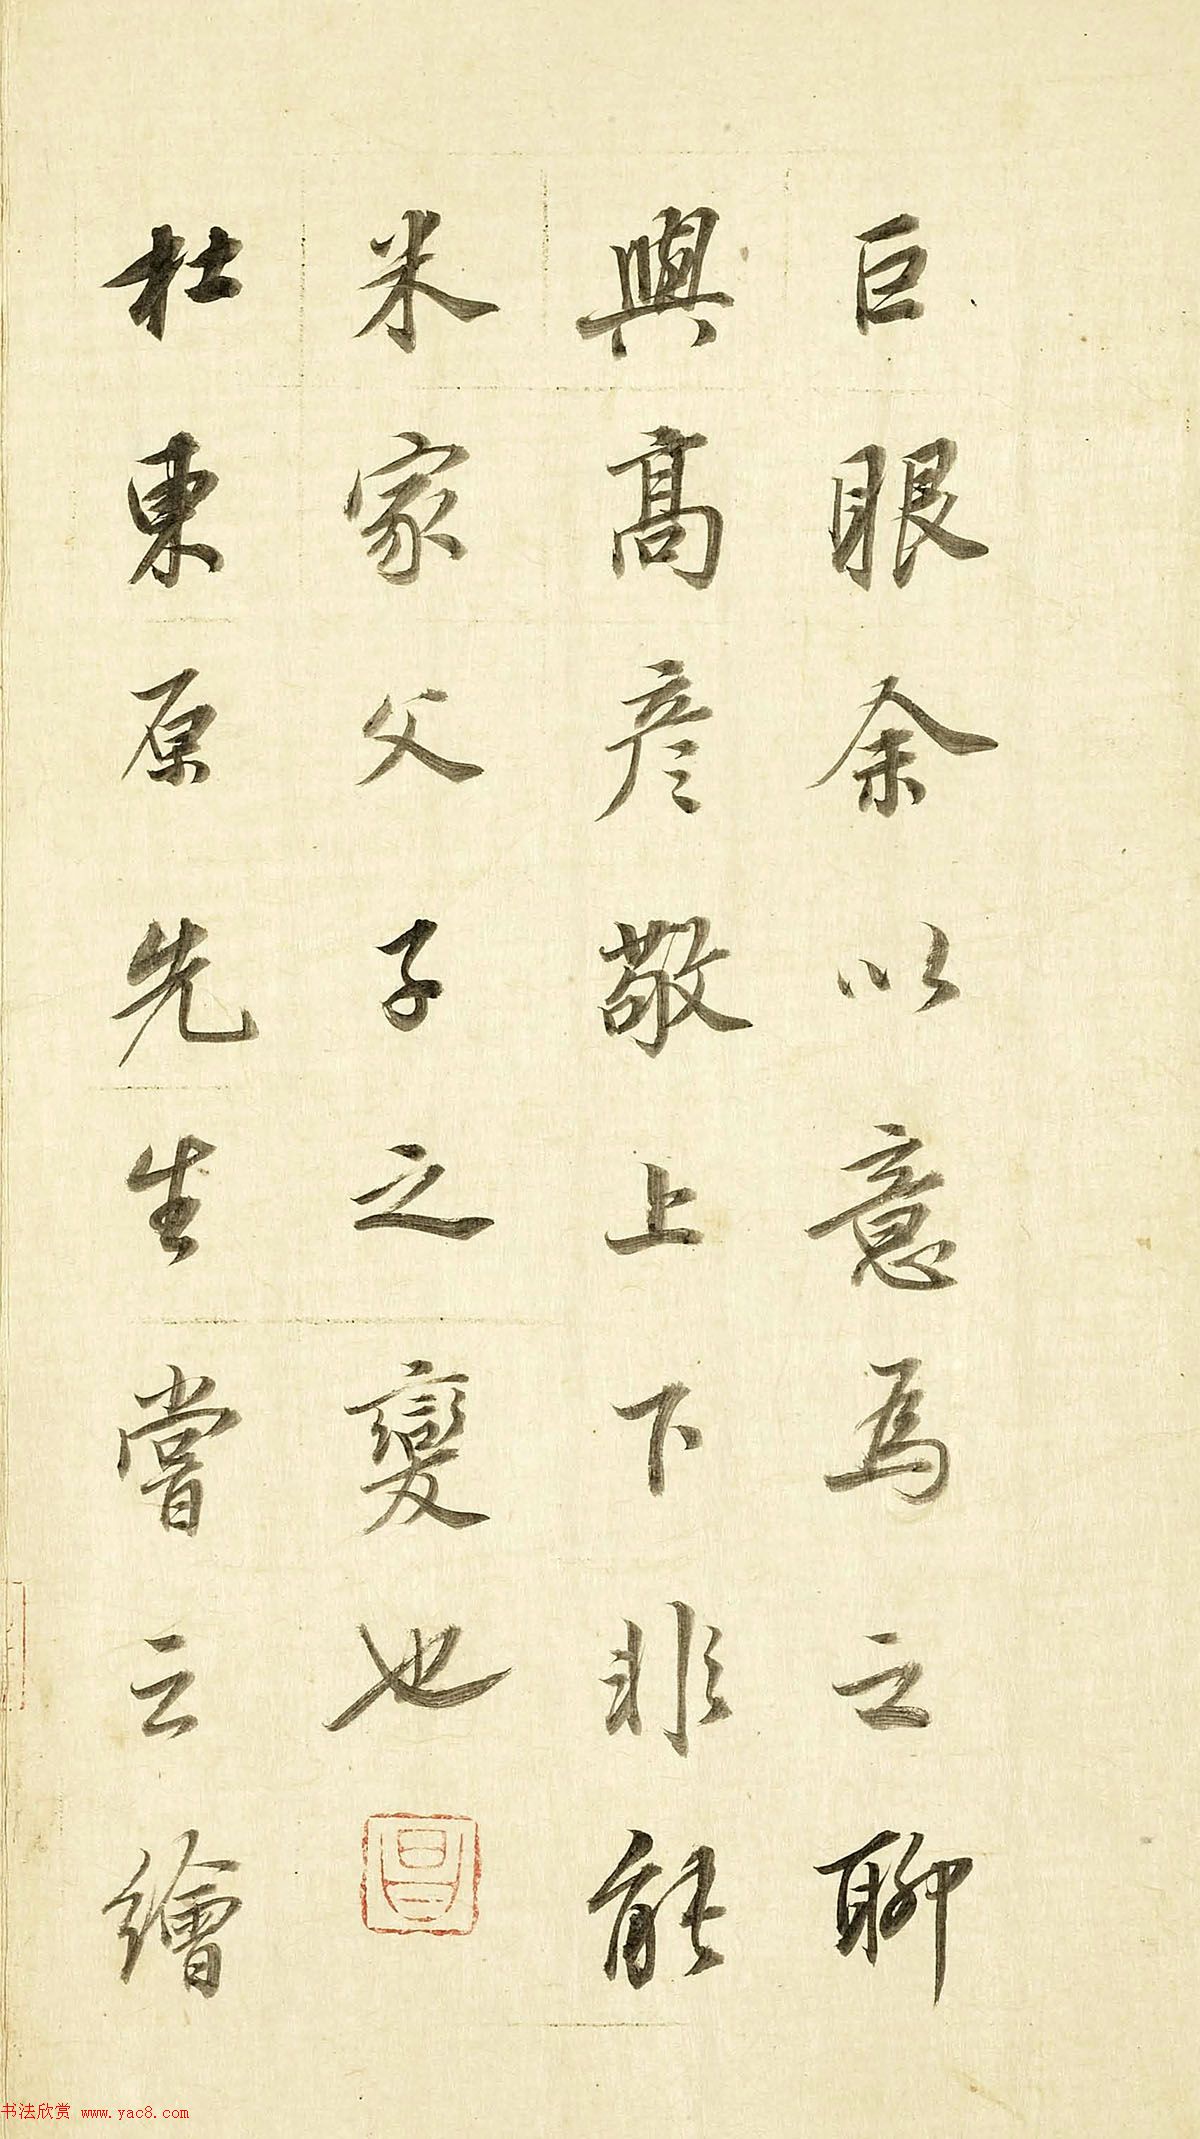 巨眼余以意為之聊
與高彥敬上下非能
米家父子之變也
昌
杜東原先生嘗云繪
书法欣赏 www.yac8.com